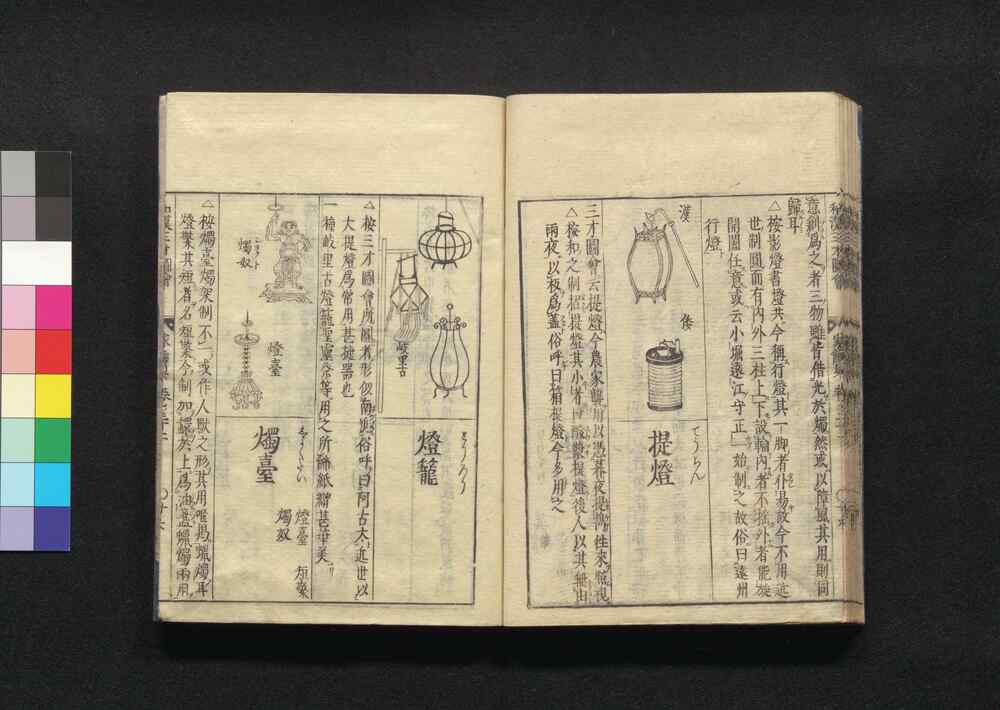 意創爲之者三物雖皆借光於燭然或以障風其用則同
歸耳
△按影燈書燈共今稱行燈其一脚者仆易故今不用近
世制圓而有内外三柱上下設輪内者不搖外者能旋
開闔任意或云小堀遠江守正一始制之故俗曰遠州
行燈
漢
倭
提燈
てうちん
三才圖會云提燈今農家襲用以憑暮夜提携往來照視
△按和之制摺提燈其小者曰酸漿提燈後人以其無由
雨夜以板爲蓋俗呼曰箱提燈今多用之
岐里古
燈籠
とうろう
△按三才圖會所圖者形似南瓜俗呼曰阿古太近世以
大提燈爲常用甚捷器也
一種岐里古燈籠聖靈祭等用之所飾紙繒甚華美
燭奴
燈臺
燭臺
しよくだい
燈臺
短檠
燭奴
△按燭臺燭架制不一或作人獸之形其用唯爲蠟燭耳
燈檠其短者名短檠今制加鑞於上爲油盞蠟燭兩用